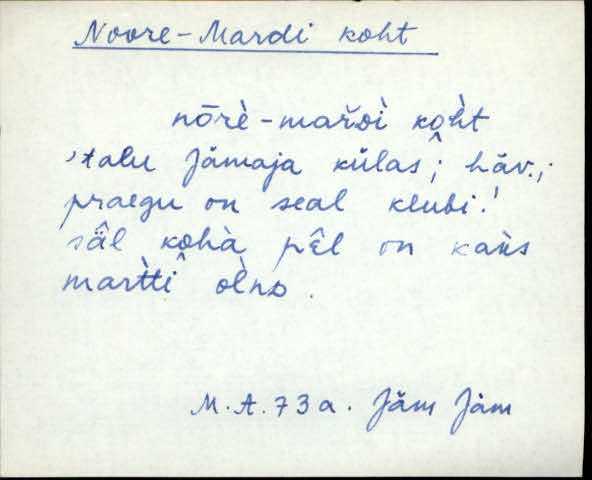 Noore-Mardi koht
nōrè-mařDì koh̀t
'talu Jämaja külas; häv.;
praegu on seal klubi.'
sä̂l kohà pêl on kaǜs
mar̀tti ol̀nD.
M.A.73a. Jäm Jäm